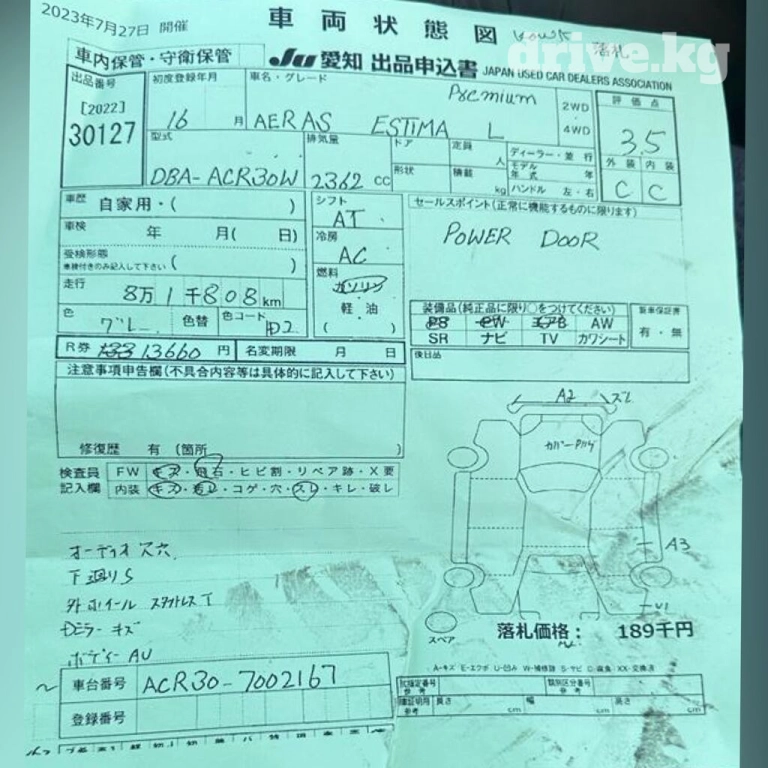 2023年7月27日 開催
車両状態図
落札
drive.kg
車内保管・守衛保管
JU 愛知 出品申込書 JAPAN USED CAR DEALERS ASSOCIATION
出品番号
[2022]
30127
初度登録年月
16 月
車名・グレード
Premium
AERAS ESTIMA L
2WD
4WD
評価点
3.5
外装 内装
C C
型式
DBA-ACR30W
排気量
2362 cc
ドア
形状
定員 人
積載 kg
ディーラー・並行
モデル年式 年
ハンドル 左・右
車歴 自家用・( )
車検 年 月( 日)
受検形態
車検付きのみ記入して下さい ( )
走行 8万1千808km
色 グレー 色替 色コード
シフト
AT
冷房
AC
燃料
ガソリン
軽・油
( )
セールスポイント(正常に機能するものに限ります)
POWER DOOR
装備品(純正品に限り○をつけてください)
PS PW エアB AW
SR ナビ TV カワシート
新車保証書
有・無
後日品
R券 13660 円 名変期限 月 日
注意事項申告欄(不具合内容等は具体的に記入して下さい)
修復歴 有 (箇所 )
検査員
記入欄
FW キズ・飛石・ヒビ割・リペア跡・X要
内装 キズ・汚レ・コゲ・穴・スレ・キレ・破レ
オーディオ欠穴
下廻りS
外ホイール スタットレス
ミラー キズ
ボディー AU
A2 ズレ
A3
U1
スペア
落札価格: 189千円
A-キズ E-エクボ U-凹み W-補修跡 S-サビ C-腐食 XX-交換済
車台番号 ACR30-7002167
登録番号
型式指定番号
参考
類別区分番号
参考
長さ cm
幅 cm
高さ cm